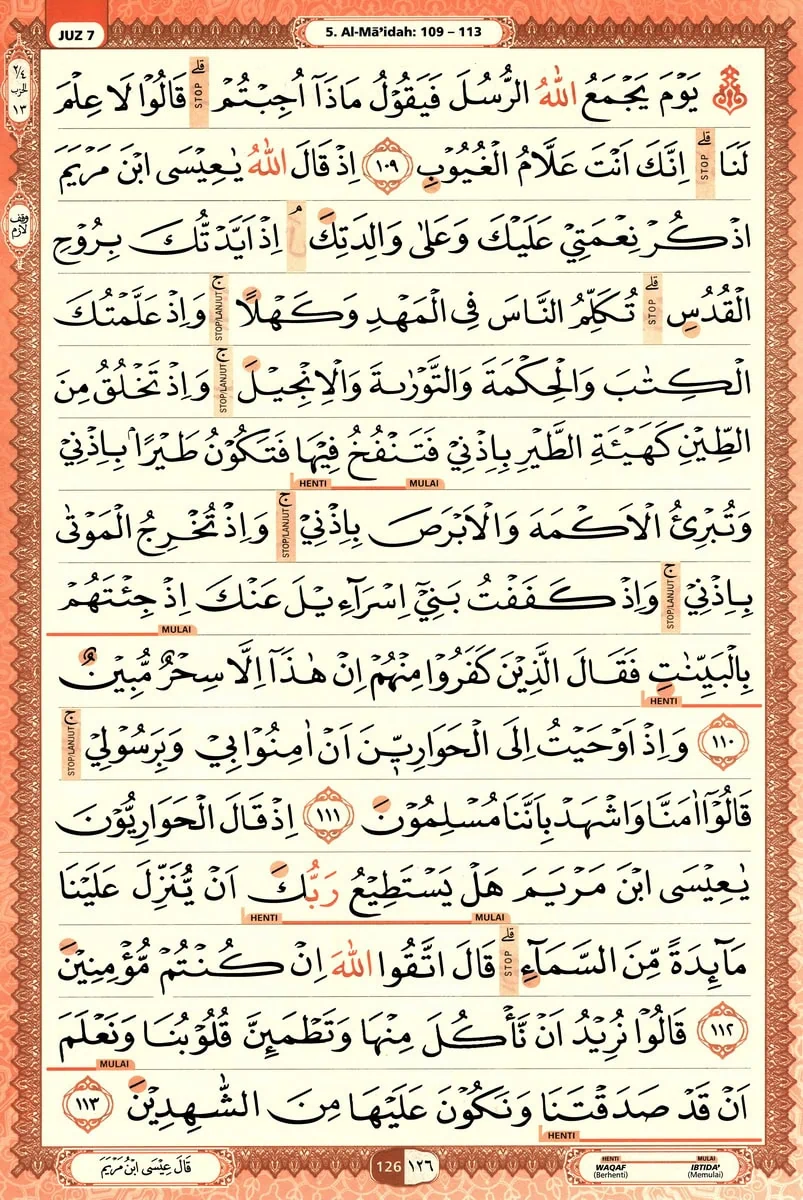 JUZ 7
5. Al-Mā'idah: 109 – 113
٢/٤
الحزب
١٣
يَوْمَ يَجْمَعُ اللّٰهُ الرُّسُلَ فَيَقُوْلُ مَاذَآ اُجِبْتُمْ ۗ قَالُوْا لَا عِلْمَ
STOP
لَنَا ۗ اِنَّكَ اَنْتَ عَلَّامُ الْغُيُوْبِ ١٠٩ اِذْ قَالَ اللّٰهُ يٰعِيْسَى ابْنَ مَرْيَمَ
STOP
وقف لازم
اذْكُرْ نِعْمَتِيْ عَلَيْكَ وَعَلٰى وَالِدَتِكَ ۘ اِذْ اَيَّدْتُّكَ بِرُوْحِ
الْقُدُسِ ۗ تُكَلِّمُ النَّاسَ فِى الْمَهْدِ وَكَهْلًا ۚ وَاِذْ عَلَّمْتُكَ
STOP STOP/LANJUT
الْكِتٰبَ وَالْحِكْمَةَ وَالتَّوْرٰىةَ وَالْاِنْجِيْلَ ۚ وَاِذْ تَخْلُقُ مِنَ
STOP/LANJUT
الطِّيْنِ كَهَيْـَٔةِ الطَّيْرِ بِاِذْنِيْ فَتَنْفُخُ فِيْهَا فَتَكُوْنُ طَيْرًاۢ بِاِذْنِيْ
HENTI MULAI
وَتُبْرِئُ الْاَكْمَهَ وَالْاَبْرَصَ بِاِذْنِيْ ۚ وَاِذْ تُخْرِجُ الْمَوْتٰى
STOP/LANJUT
بِاِذْنِيْ ۚ وَاِذْ كَفَفْتُ بَنِيْٓ اِسْرَاۤءِيْلَ عَنْكَ اِذْ جِئْتَهُمْ
STOP/LANJUT
MULAI
بِالْبَيِّنٰتِ فَقَالَ الَّذِيْنَ كَفَرُوْا مِنْهُمْ اِنْ هٰذَآ اِلَّا سِحْرٌ مُّبِيْنٌ
HENTI
١١٠ وَاِذْ اَوْحَيْتُ اِلَى الْحَوَارِيّٖنَ اَنْ اٰمِنُوْا بِيْ وَبِرَسُوْلِيْ ۚ
STOP/LANJUT
قَالُوْٓا اٰمَنَّا وَاشْهَدْ بِاَنَّنَا مُسْلِمُوْنَ ١١١ اِذْ قَالَ الْحَوَارِيُّوْنَ
يٰعِيْسَى ابْنَ مَرْيَمَ هَلْ يَسْتَطِيْعُ رَبُّكَ اَنْ يُّنَزِّلَ عَلَيْنَا
HENTI MULAI
مَاۤىِٕدَةً مِّنَ السَّمَاۤءِ ۗ قَالَ اتَّقُوا اللّٰهَ اِنْ كُنْتُمْ مُّؤْمِنِيْنَ
STOP
١١٢ قَالُوْا نُرِيْدُ اَنْ نَّأْكُلَ مِنْهَا وَتَطْمَىِٕنَّ قُلُوْبُنَا وَنَعْلَمَ
MULAI
اَنْ قَدْ صَدَقْتَنَا وَنَكُوْنَ عَلَيْهَا مِنَ الشّٰهِدِيْنَ ١١٣
HENTI
قَالَ عِيْسَى ابْنُ مَرْيَمَ
126 ١٢٦
HENTI MULAI
WAQAF IBTIDA'
(Berhenti) (Memulai)